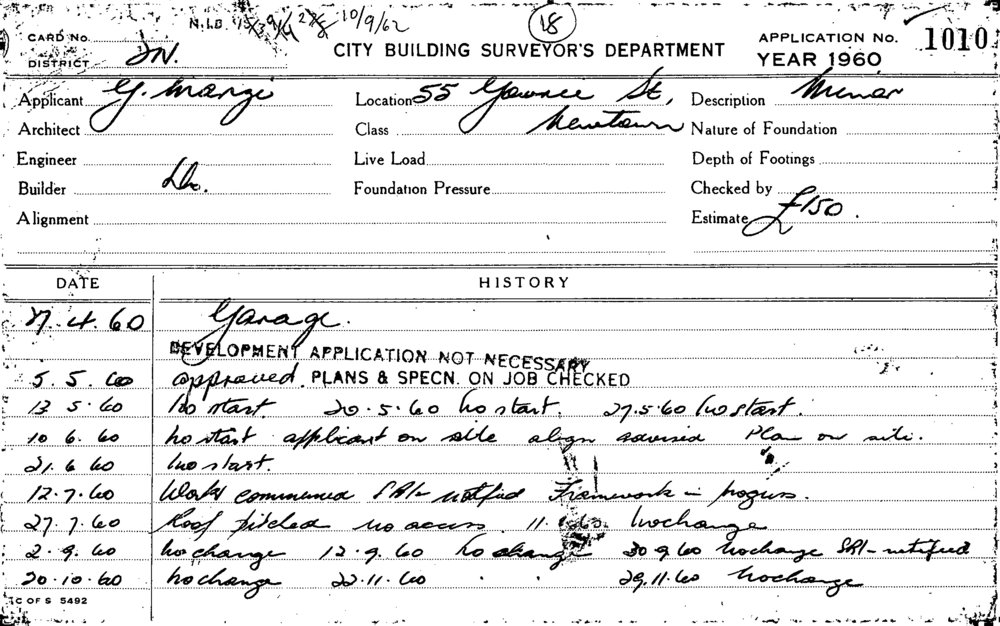 N.I.D 15/3 9/4 28/8 10/9/62 18
CARD No. CITY BUILDING SURVEYOR'S DEPARTMENT APPLICATION No. 1010
DISTRICT JN. YEAR 1960
Applicant G. Location 55 St, Description Minor
Architect Class Newtown Nature of Foundation
Engineer Live Load Depth of Footings
Builder Do. Foundation Pressure Checked by
Alignment Estimate £150.
DATE HISTORY
27.4.60 Garage.
DEVELOPMENT APPLICATION NOT NECESSARY
5.5.60 approved. PLANS & SPECN. ON JOB CHECKED
13 5.60 No start. 20.5.60 No start. 27.5.60 No start.
10 6.60 No start applicant on site align advised Plan on site.
21.6 60 No start.
12.7.60 Works commenced notified Framework in progress.
27.7.60 Roof pitched no access. 11 60. No change
2.9.60 No change 12.9.60 No change 30 9 60 No change notified
20.10.60 No change 22.11.60 . . 29.11.60 No change
C OF S 5492